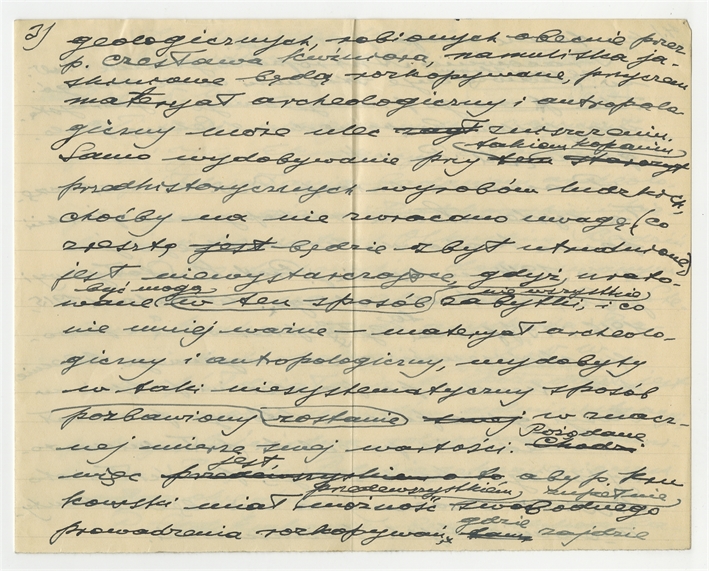 3)
geologicznych, robionych obecnie przez
p. Czesława Kuźniara, namuliska ja-
skiniowe będą rozkopywane, przyczem
materyał archeologiczny i antropolo-
giczny może ulec zniszczeniu.
takiem kopaniu
Samo wydobywanie przy tem starożyt
przedhistorycznych wyrobów ludzkich,
choćby na nie zwracano uwagę (co
zresztą jest będzie zbyt utrudnione)
jest niewystarczające, gdyż urato-
być mogą nie wszystkie
wane w ten sposób zabytki, i co
nie mniej ważne — materyał archeolo-
giczny i antropologiczny, wydobyty
w taki niesystematyczny sposób
pozbawiony zostanie swej w znacz-
nej mierze swej wartości. Chodz
Pożądane
jest
więc przedewszystkiem o to aby p. Kru
przedewszystkiem, zupełnie
kowski miał możność swobodnego
gdzie
prowadzenia rozkopywań, zajdzie